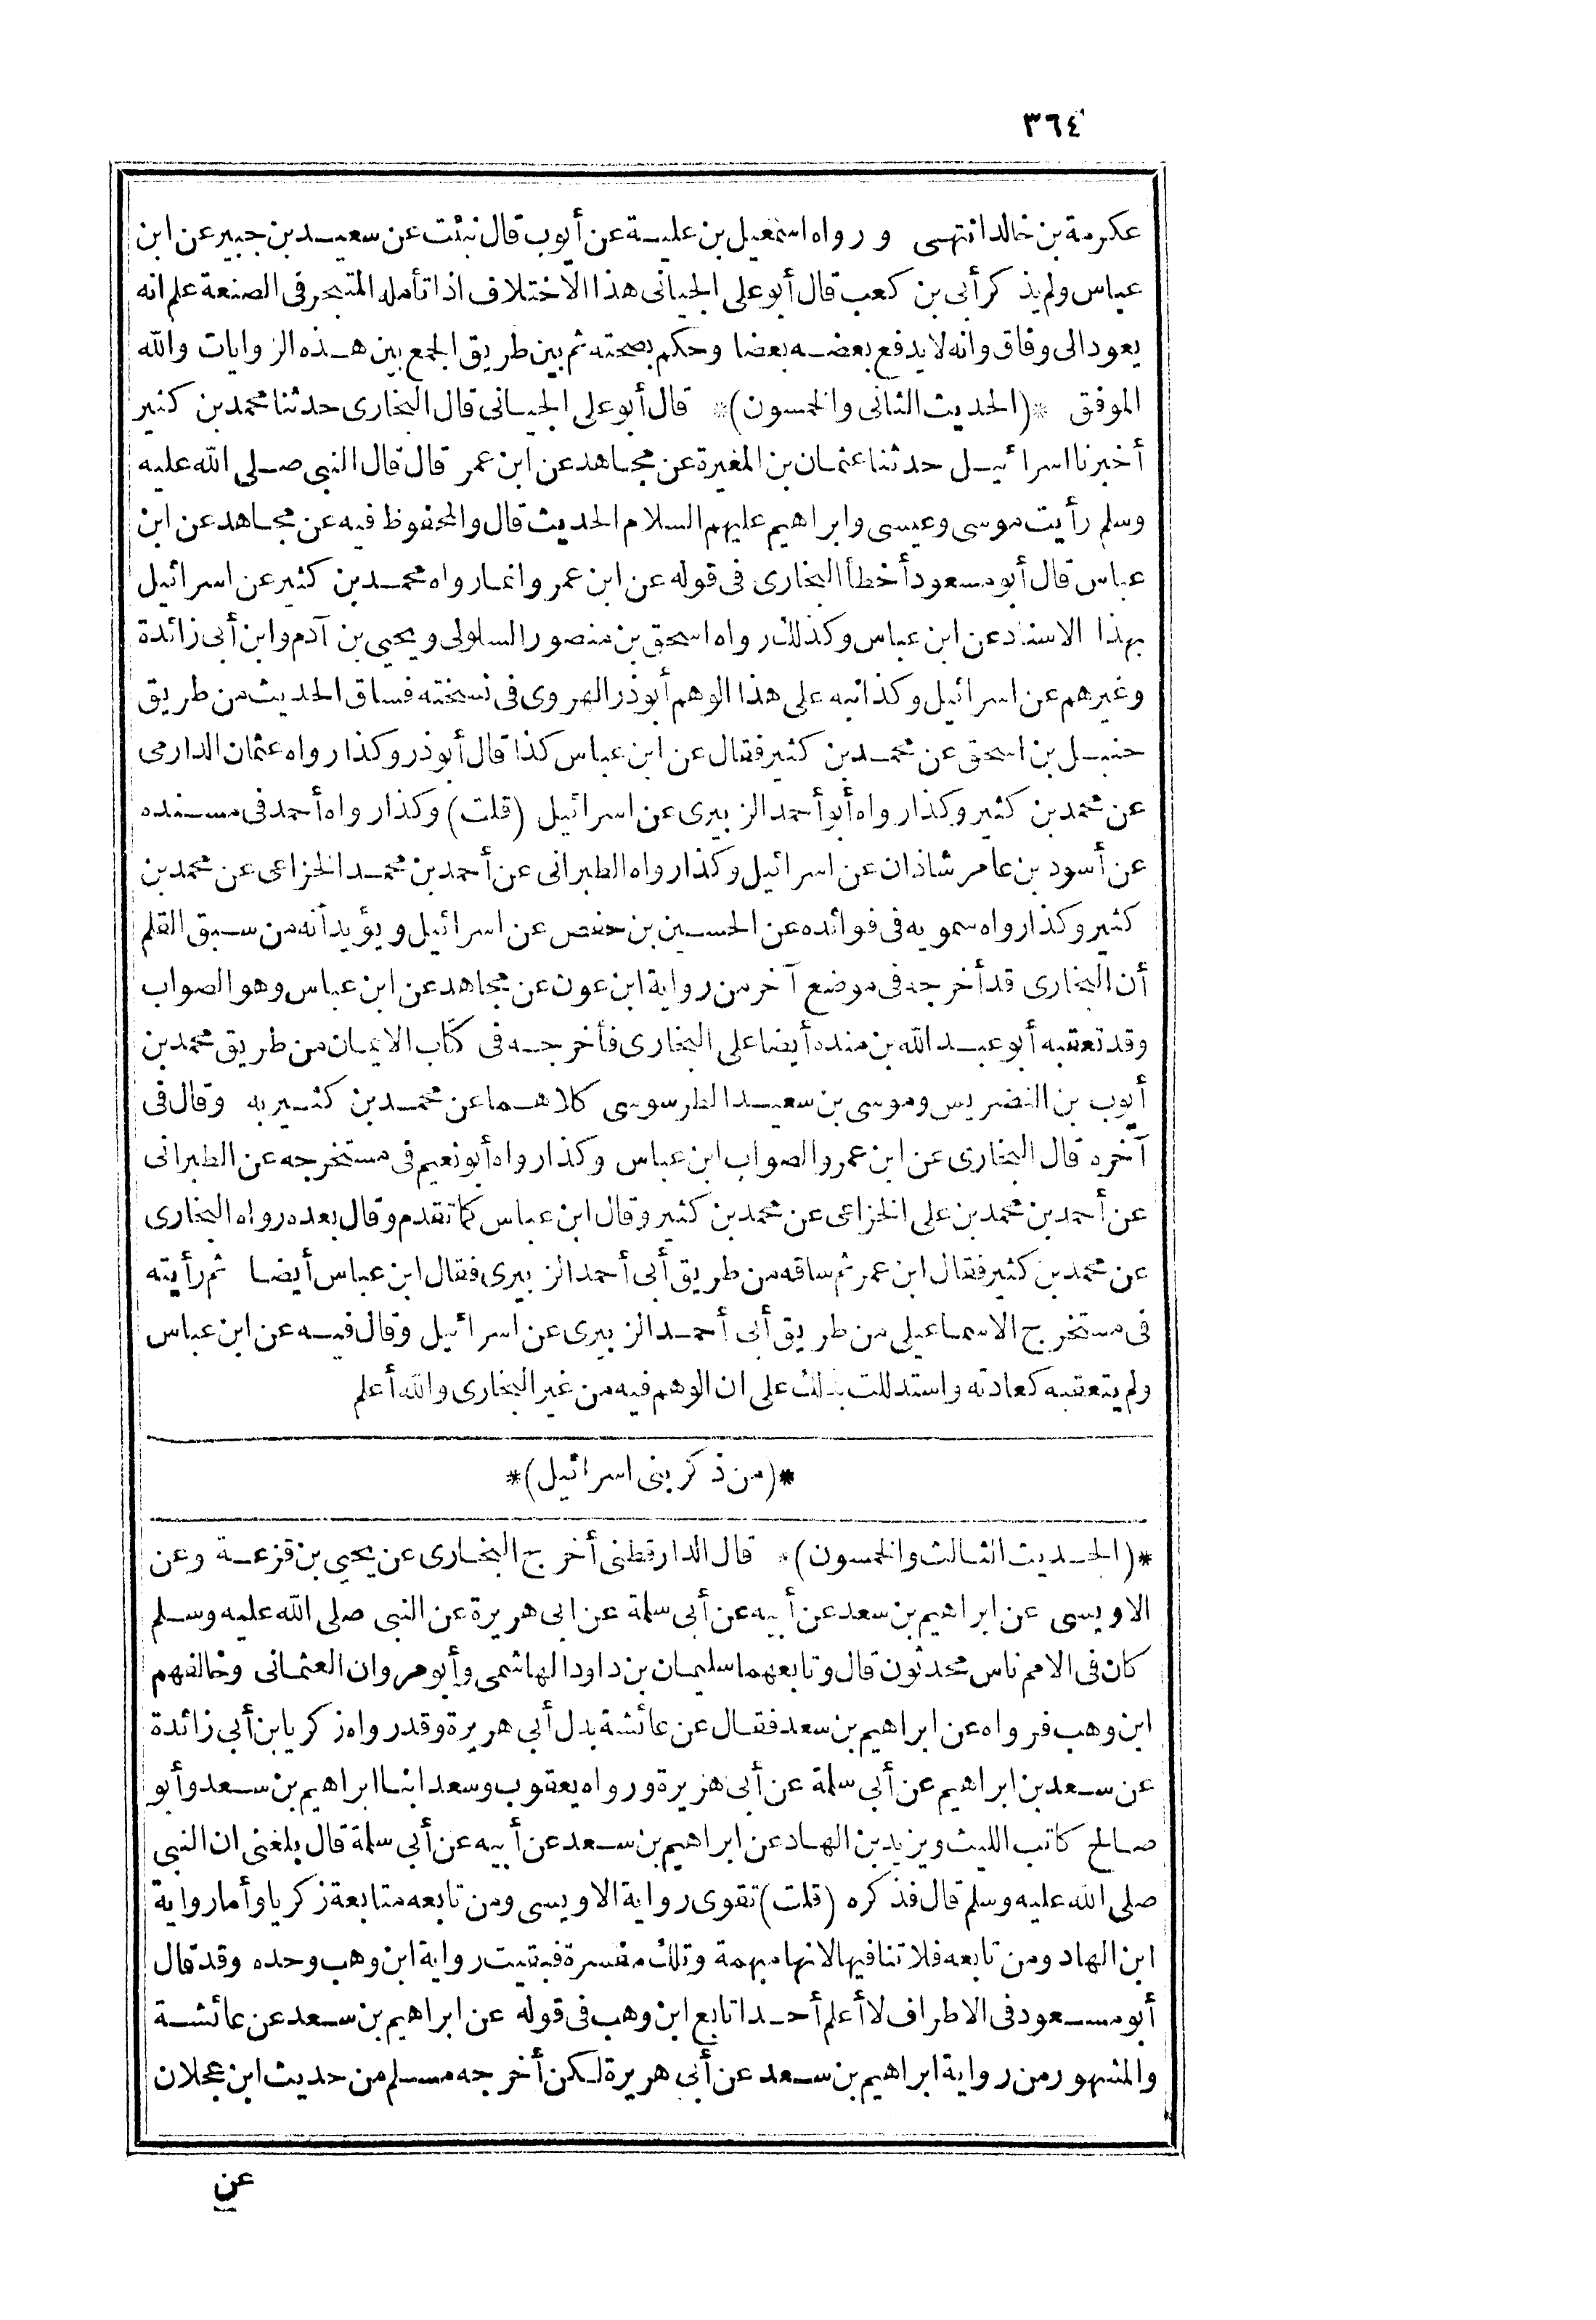 ٣٦٤
عكرمة بن خالد انتهى ورواه اسمعيل بن علية عن أيوب قال نبئت عن سعيد بن جبير عن ابن
عباس ولم يذكر أبي بن كعب قال أبو على الجيانى هذا الاختلاف اذا تأمله المتبحر فى الصنعة علم انه
يعود الى وفاق وانه لا يدفع بعضه بعضا وحكم بصحته ثم بين طريق الجمع بين هذه الروايات والله
الموفق *(الحديث الثانى والخمسون)* قال أبو على الجيانى قال البخارى حدثنا محمد بن كثير
أخبرنا اسرائيل حدثنا عثمان بن المغيرة عن مجاهد عن ابن عمر قال قال النبى صلى الله عليه
وسلم رأيت موسى وعيسى وابراهيم عليهم السلام الحديث قال والمحفوظ فيه عن مجاهد عن ابن
عباس قال أبو مسعود أخطأ البخارى فى قوله عن ابن عمر وانما رواه محمد بن كثير عن اسرائيل
بهذا الاسناد عن ابن عباس وكذلك رواه اسحق بن منصور السلولى ويحيى بن آدم وابن أبى زائدة
وغيرهم عن اسرائيل وكذا نبه على هذا الوهم أبو ذر الهروى فى نسخته فساق الحديث من طريق
حنبل بن اسحق عن محمد بن كثير فقال عن ابن عباس كذا قال أبو ذر وكذا رواه عثمان الدارمى
عن محمد بن كثير وكذا رواه أبو أحمد الزبيرى عن اسرائيل (قلت) وكذا رواه أحمد فى مسنده
عن أسود بن عامر شاذان عن اسرائيل وكذا رواه الطبرانى عن أحمد بن محمد الخزاعى عن محمد بن
كثير وكذا رواه سمويه فى فوائده عن الحسين بن حفص عن اسرائيل ويؤيد أنه من سبق القلم
أن البخارى قد أخرجه فى موضع آخر من رواية ابن عون عن مجاهد عن ابن عباس وهو الصواب
وقد تعقبه أبو عبد الله بن منده أيضا على البخارى فأخرجه فى كتاب الايمان من طريق محمد بن
أيوب بن الضريس وموسى بن سعيد الطرسوسى كلاهما عن محمد بن كثير به وقال فى
آخره قال البخارى عن ابن عمر والصواب ابن عباس وكذا رواه أبو نعيم فى مستخرجه عن الطبرانى
عن أحمد بن محمد بن على الخزاعى عن محمد بن كثير وقال ابن عباس كما تقدم وقال بعده رواه البخارى
عن محمد بن كثير فقال ابن عمر ثم ساقه من طريق أبى أحمد الزبيرى فقال ابن عباس أيضا ثم رأيته
فى مستخرج الاسماعيلى من طريق أبى أحمد الزبيرى عن اسرائيل وقال فيه عن ابن عباس
ولم يتعقبه كعادته واستدللت بذلك على ان الوهم فيه من غير البخارى والله أعلم
*(من ذكر بنى اسرائيل)*
*(الحديث الثالث والخمسون)* قال الدارقطنى أخرج البخارى عن يحيى بن قزعة وعن
الاويسى عن ابراهيم بن سعد عن أبيه عن أبى سلمة عن ابى هريرة عن النبى صلى الله عليه وسلم
كان فى الامم ناس محدثون قال وتابعهما سليمان بن داود الهاشمى وأبو مروان العثمانى وخالفهم
ابن وهب فرواه عن ابراهيم بن سعد فقال عن عائشة بدل أبي هريرة وقد رواه زكريا بن أبي زائدة
عن سعد بن ابراهيم عن أبي سلمة عن أبى هريرة ورواه يعقوب وسعد ابنا ابراهيم بن سعد وأبو
صالح كاتب الليث ويزيد بن الهاد عن ابراهيم بن سعد عن أبيه عن أبي سلمة قال بلغنى ان النبى
صلى الله عليه وسلم قال فذكره (قلت) تقوى رواية الاويسى ومن تابعه متابعة زكريا وأما رواية
ابن الهاد ومن تابعه فلا تنافيها لانها مبهمة وتلك مفسرة فبقيت رواية ابن وهب وحده وقد قال
أبو مسعود فى الاطراف لا أعلم أحدا تابع ابن وهب فى قوله عن ابراهيم بن سعد عن عائشة
والمشهور من رواية ابراهيم بن سعد عن أبى هريرة لكن أخرجه مسلم من حديث ابن عجلان
عن